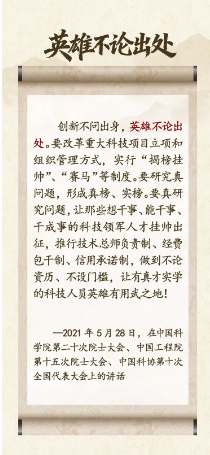 英雄不论出处
创新不问出身，英雄不论出
处。要改革重大科技项目立项和
组织管理方式，实行“揭榜挂
帅”、“赛马”等制度。要研究真
问题，形成真榜、实榜。要真研
究问题，让那些想干事、能干事、
干成事的科技领军人才挂帅出
征，推行技术总师负责制、经费
包干制、信用承诺制，做到不论
资历、不设门槛，让有真才实学
的科技人员英雄有用武之地！
—2021 年 5 月 28 日，在中国科
学院第二十次院士大会、中国工程院
第十五次院士大会、中国科协第十次
全国代表大会上的讲话